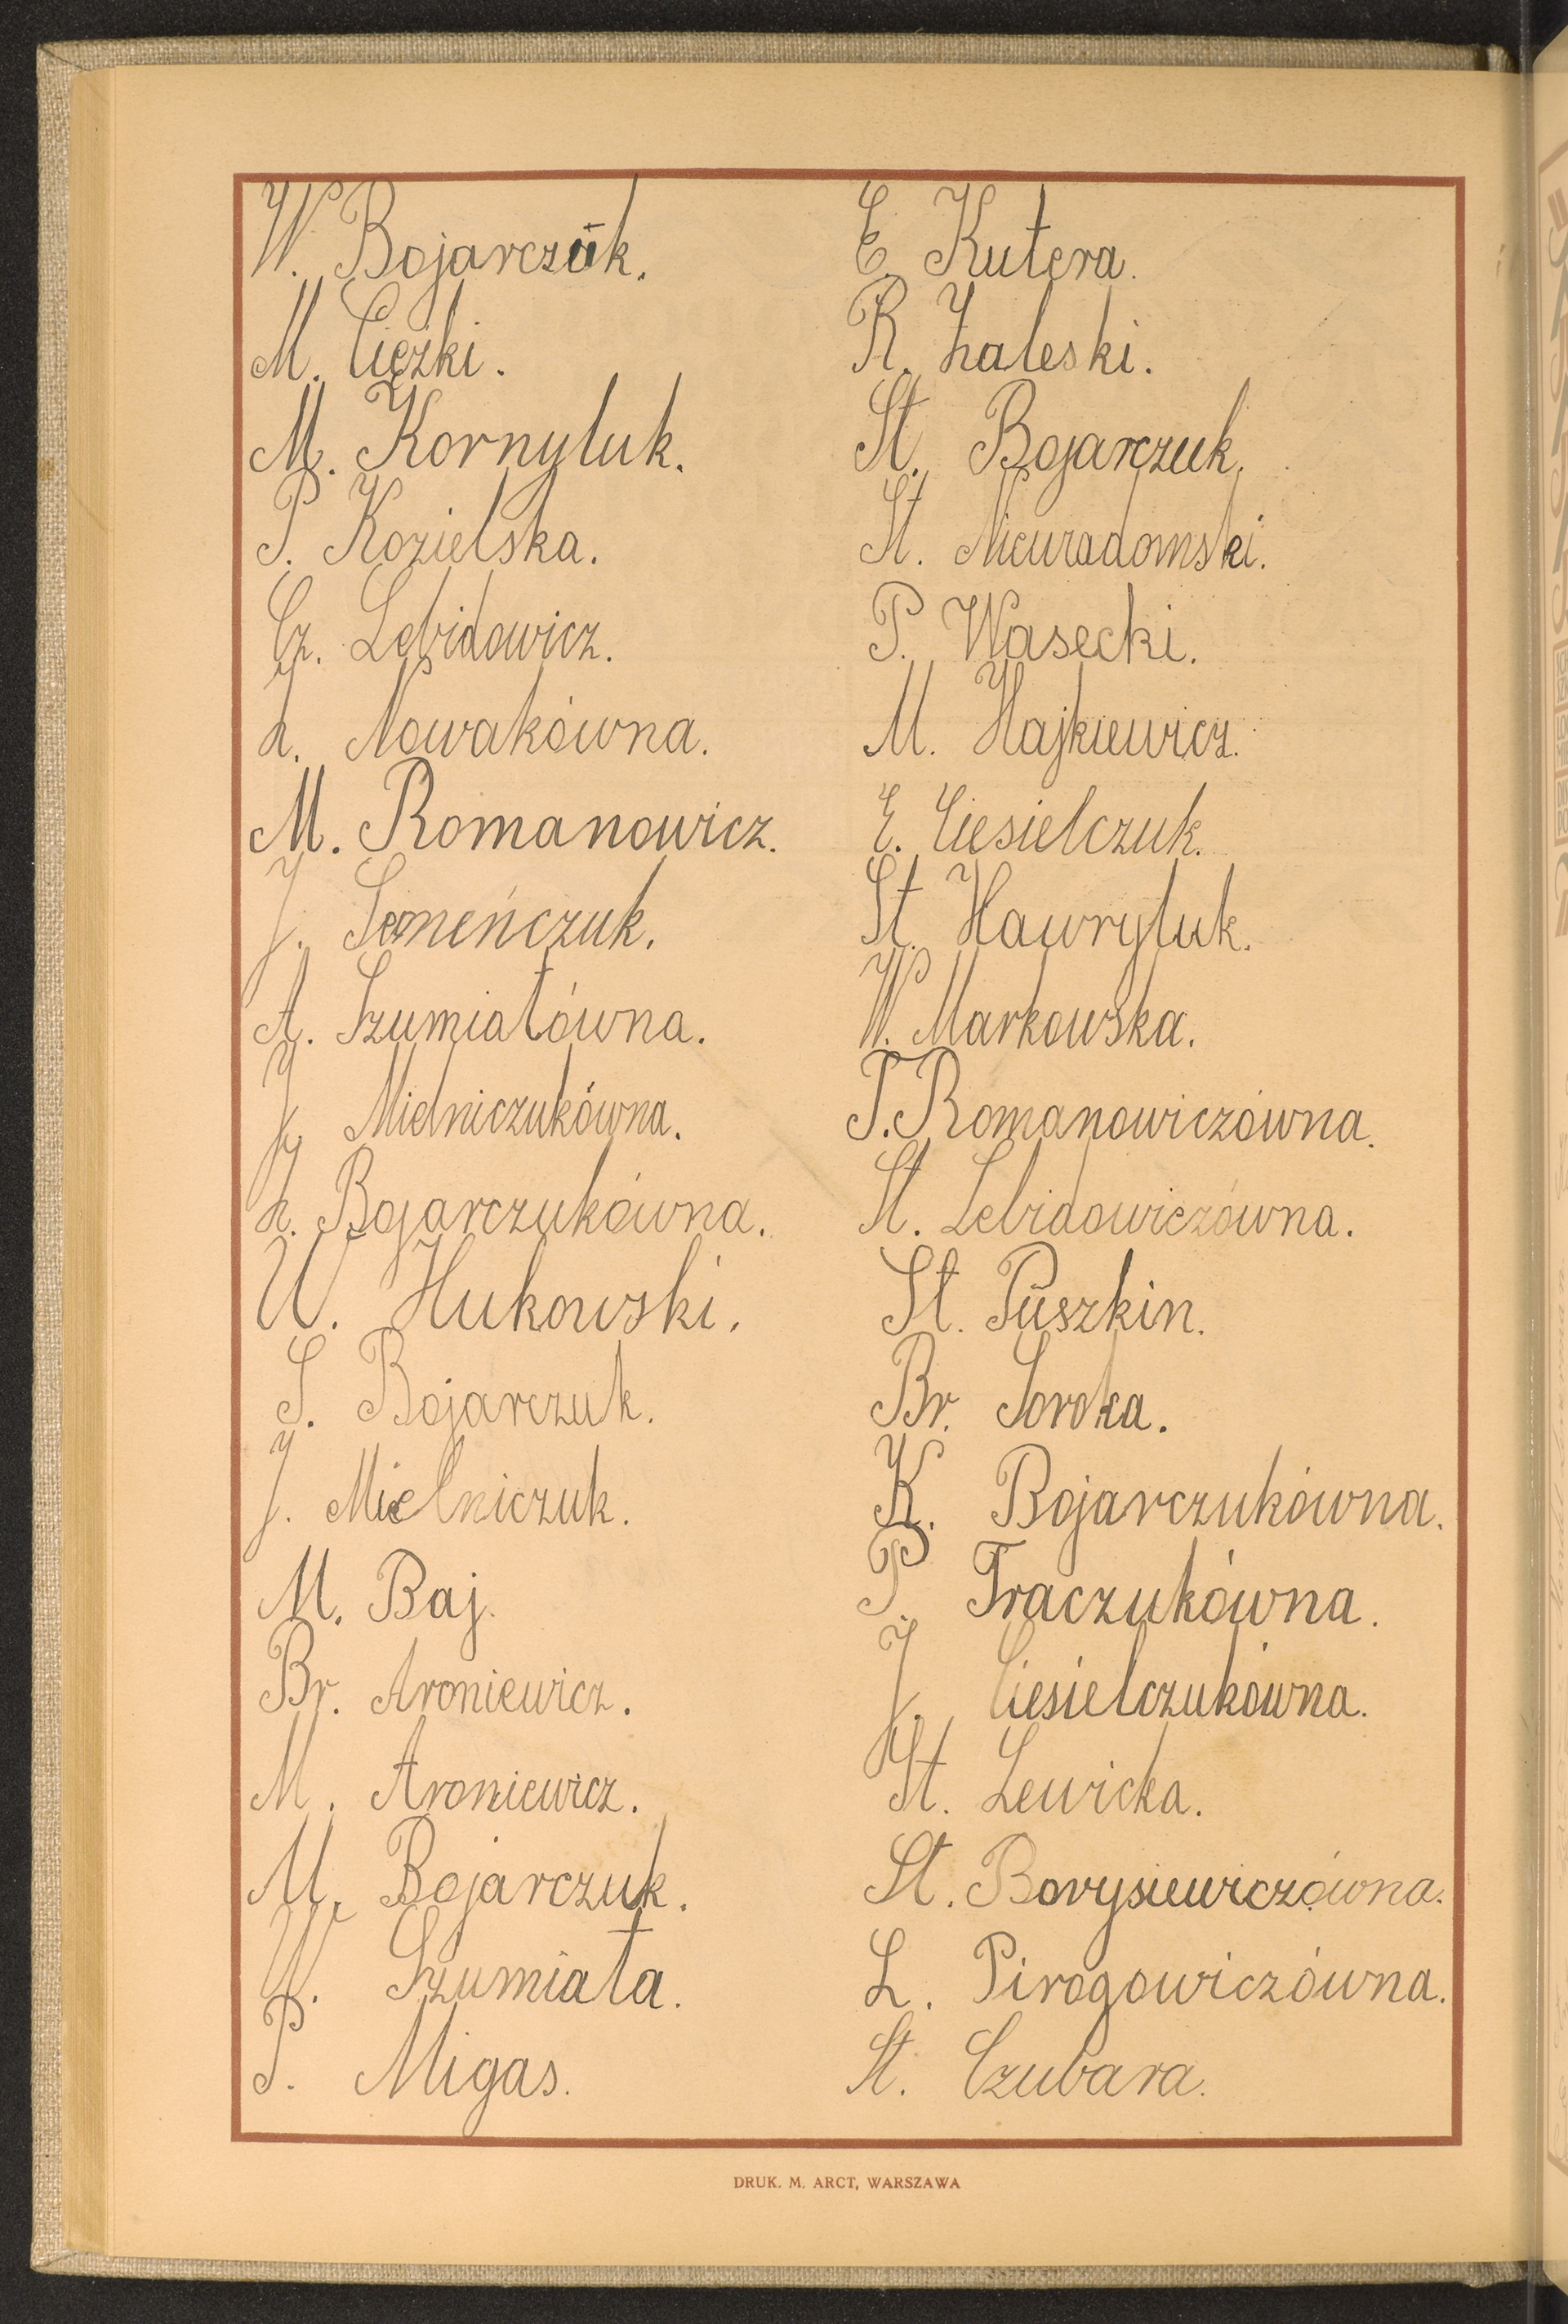 W. Bojarczuk.
M. Ciężki.
M. Kornyluk.
P. Kozielska.
Cz. Lebidowicz.
A. Nowakówna.
M. Romanowicz.
J. Semeńczuk.
A. Szumiałówna.
J. Mielniczukówna.
A. Bojarczukówna.
W. Hukowski.
S. Bojarczuk.
J. Mielniczuk.
M. Baj.
Br. Aroniewicz.
M. Aroniewicz.
M. Bojarczuk.
W. Szumiała.
P. Migas.
E. Kutera.
R. Zaleski.
St. Bojarczuk.
St. Nieuradomski.
P. Wasecki.
M. Hajkiewicz.
E. Ciesielczuk.
St. Hawryluk.
W. Markowska.
T. Romanowiczówna.
St. Lebidowiczówna.
St. Puszkin.
Br. Soroka.
K. Bojarczukówna.
P. Traczukówna.
J. Ciesielczukówna.
St. Lewicka.
St. Borysiewiczówna.
L. Pirogowiczówna.
St. Czubara.
DRUK. M. ARCT, WARSZAWA